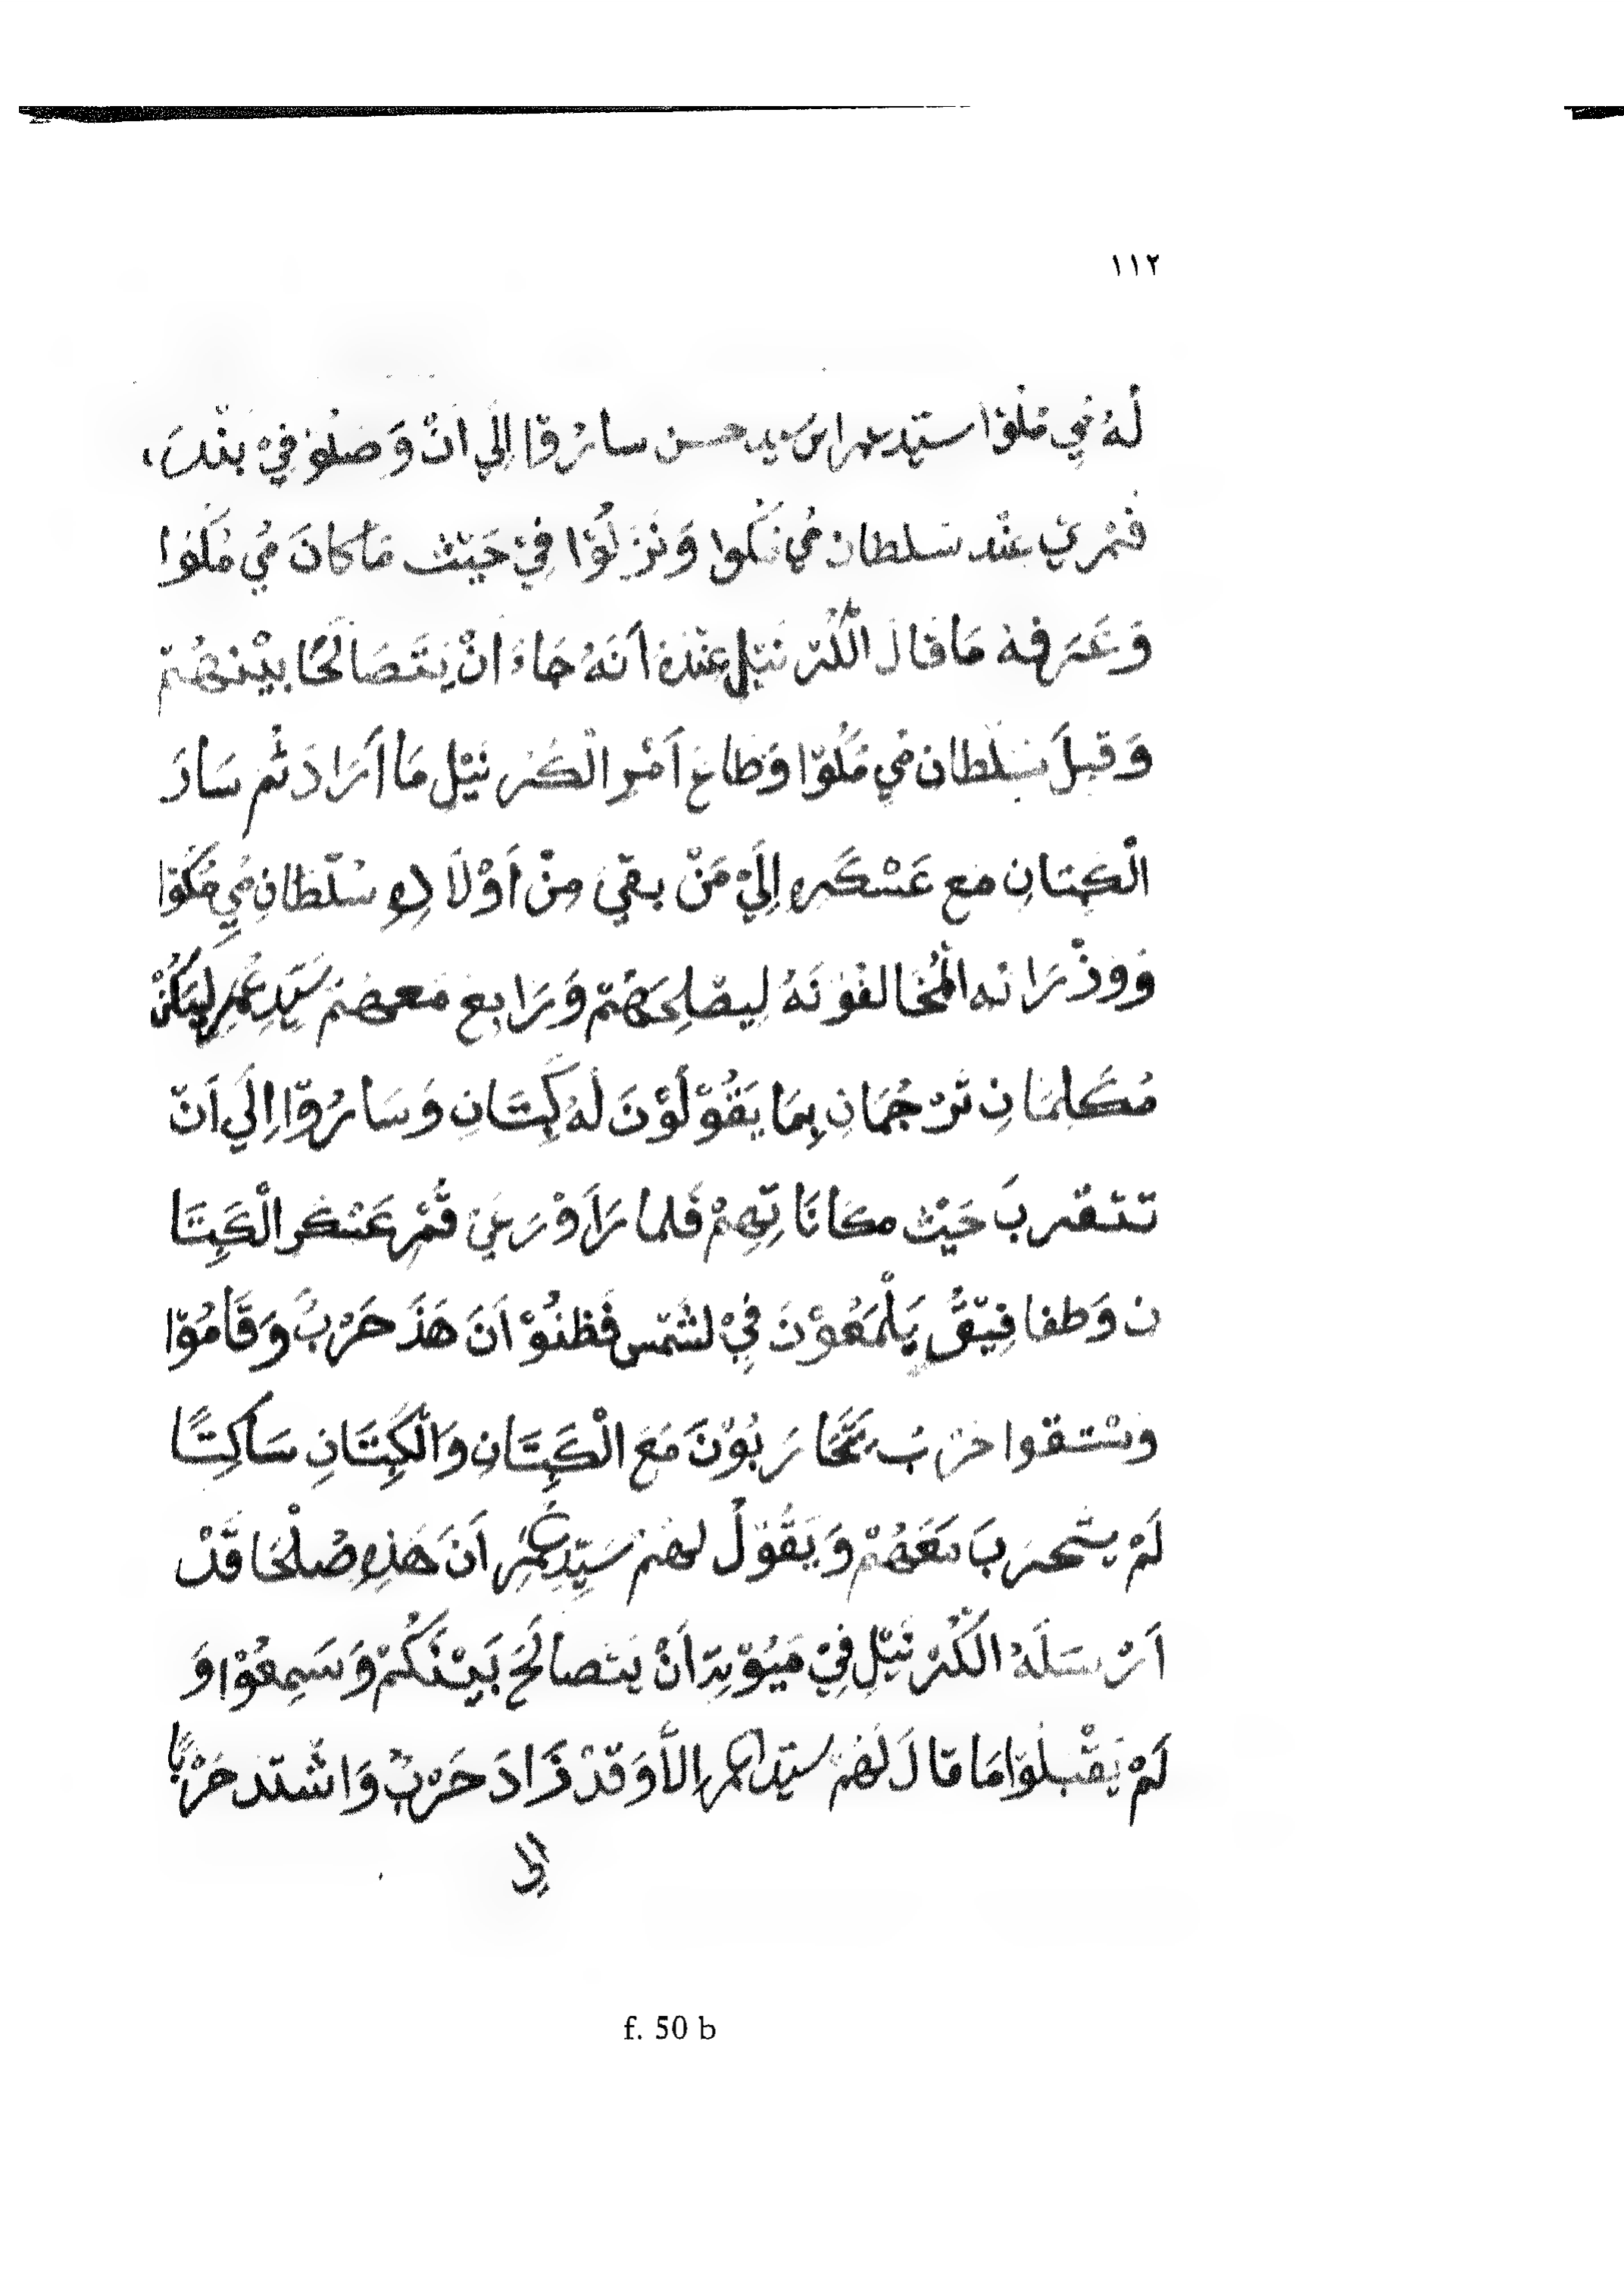 ١١٢
لَهُ مُي مْلُوْا سيّد عمر ابن سيد حسن سارُوا اِلَي اَنْ وَصَلُوْ فِيْ بَنْدَرَ،
قمْرِيْ عِنْد سَلطان مُي مْكُوا وَنَزَلُوْا فِيْ حَيْثْ مَا كَانَ مُي مْكُوَا
وَعَرَفِهُ مَا قَالَ الْكُرْنَيْل عِنْدَهُ اَنَهُ جَاءَ اَنْ يَتَصَالَحُا بَيْنهُمْ
وَقبِلَ سُلْطان مُي مْكُوْا وَطَاعَ اَمْرِ الْكُرنَيْل مَا اَرَادَ ثُم سَارَ
الْكَبِتَانِ مَع عَسْكَرِهِ اِلَيْ مَنْ بَقِيَ مِنْ اَوْلَادِ سُلْطَانِ مُي مْكُوْا
وَوُزْرَانه الْمُخَالفُوْنَهُ لِيصْلِحَهُمْ وَرَابِعْ مَعهُمْ سَيّدِ عُمَرِ لِيَكُنْ
مُكَلِمَانِ تَرْجُمَانِ بِمَا يَقُوْلُوْنَ لَهُ كَبِتَانِ وَسَارُوْا اِلَي اَنْ
تتقرب حَيْثْ مكانَاتِهِمْ فَلما رَاَوْ رَيْنِ قُمْر عَسْكر الْكَبِتَا
ن وَطفا فِيْقُ يَلْمَعُوْنَ فِيْ لشَمْس فَظنُوْ اَنَ هَذَ حَرْبً وَقَامُوْا
وَسْتقوا حَرْبُ يَتَحَارَبُوْنَ مَعَ الْكَبِتَانِ وَالْكَبِتَانِ سَاكِتًا
لَمْ يتْحرَبَ مَعَهُمْ وَيَقُوْلُ لهُمْ سَيّدِ عُمَرِ اَنَ هَذِهِ صُلْحَا قَدْ
اَرْسَلَهُ الْكُرْنَيْل فِيْ مَيُوْتِ اَنْ يتصَالَحُ بَيْنَكُمْ وَسَمِعُوْا وَ
لَمْ يَقْبلُوْا مَا قالَ لَهُمْ سَيّد عمر اِلَّا وَقَدْ زَادَ حَرْبٌ وَاشْتدَ حَرْبًا
الي
f. 50 b